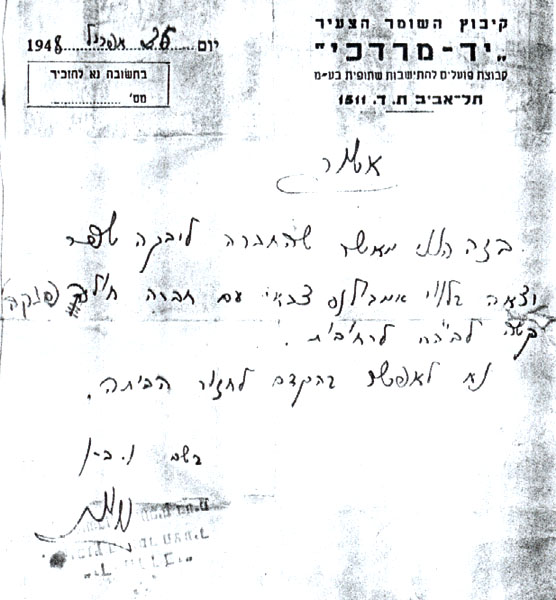 קיבוץ השומר הצעיר
"יד-מרדכי"
קבוצת פועלים להתישבות שתופית בע״מ
תל-אביב ת. ד. 1511
יום 26 אפריל 1948
בתשובה נא להזכיר
מס'
אשור
בזה הנני מאשר שהחברה ליבקה שפר
יוצאה בלווי אמבולנס צבאי עם חברה חולה
קשה לבי״ח לרחובות.
נא לאפשר בהקדם לחזור הביתה.
בשם